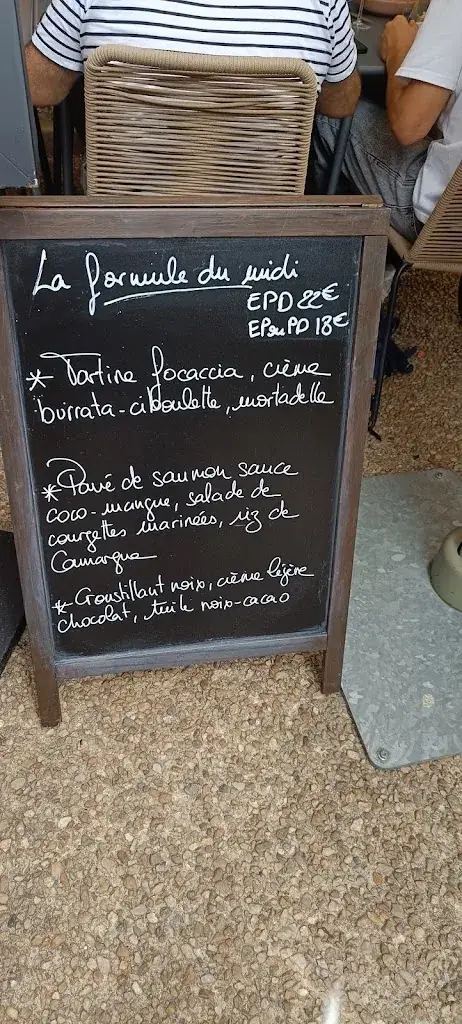 La formule du midi
EPD 22€
EP ou PD 18€
* Tartine focaccia, crème
burrata-ciboulette, mortadelle
* Pavé de saumon sauce
coco-mangue, salade de
courgettes marinées, riz de
Camargue
* Croustillant noix, crème légère
chocolat, tuile noix-cacao